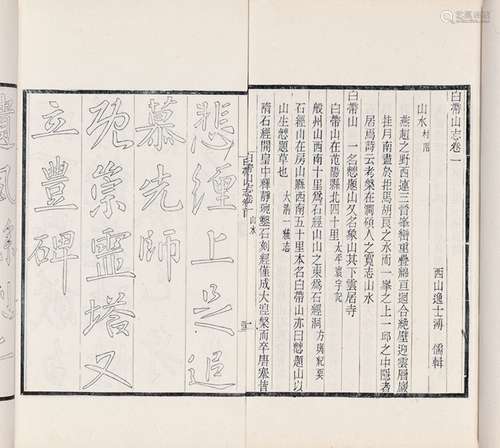 白帶山志卷一
西山逸士溥 儒輯
山水 村落
燕趙之野西連三晉峯巒重疊綿亘迴合絕壁迎雲層巖
挂月南盡於拒馬胡良之水而一峯之上一邱之中隱者
居焉詩云考槃在澗碩人之寬志山水
白帶山 一名題山又名象山其下雲居寺
白帶山在范陽縣北四十里 太平寰宇記
般州山西南十里為石經山山之東為石經洞 方輿紀要
石經山在房山縣西南五十里本名白帶山亦曰題山以
山生題草也 大清一統志
隋石經開皇中釋靜琬鑿石刻經僅成大涅槃而卒唐
白帶山志卷一
悲纏上足追
慕先師
既崇靈塔又
立豐碑